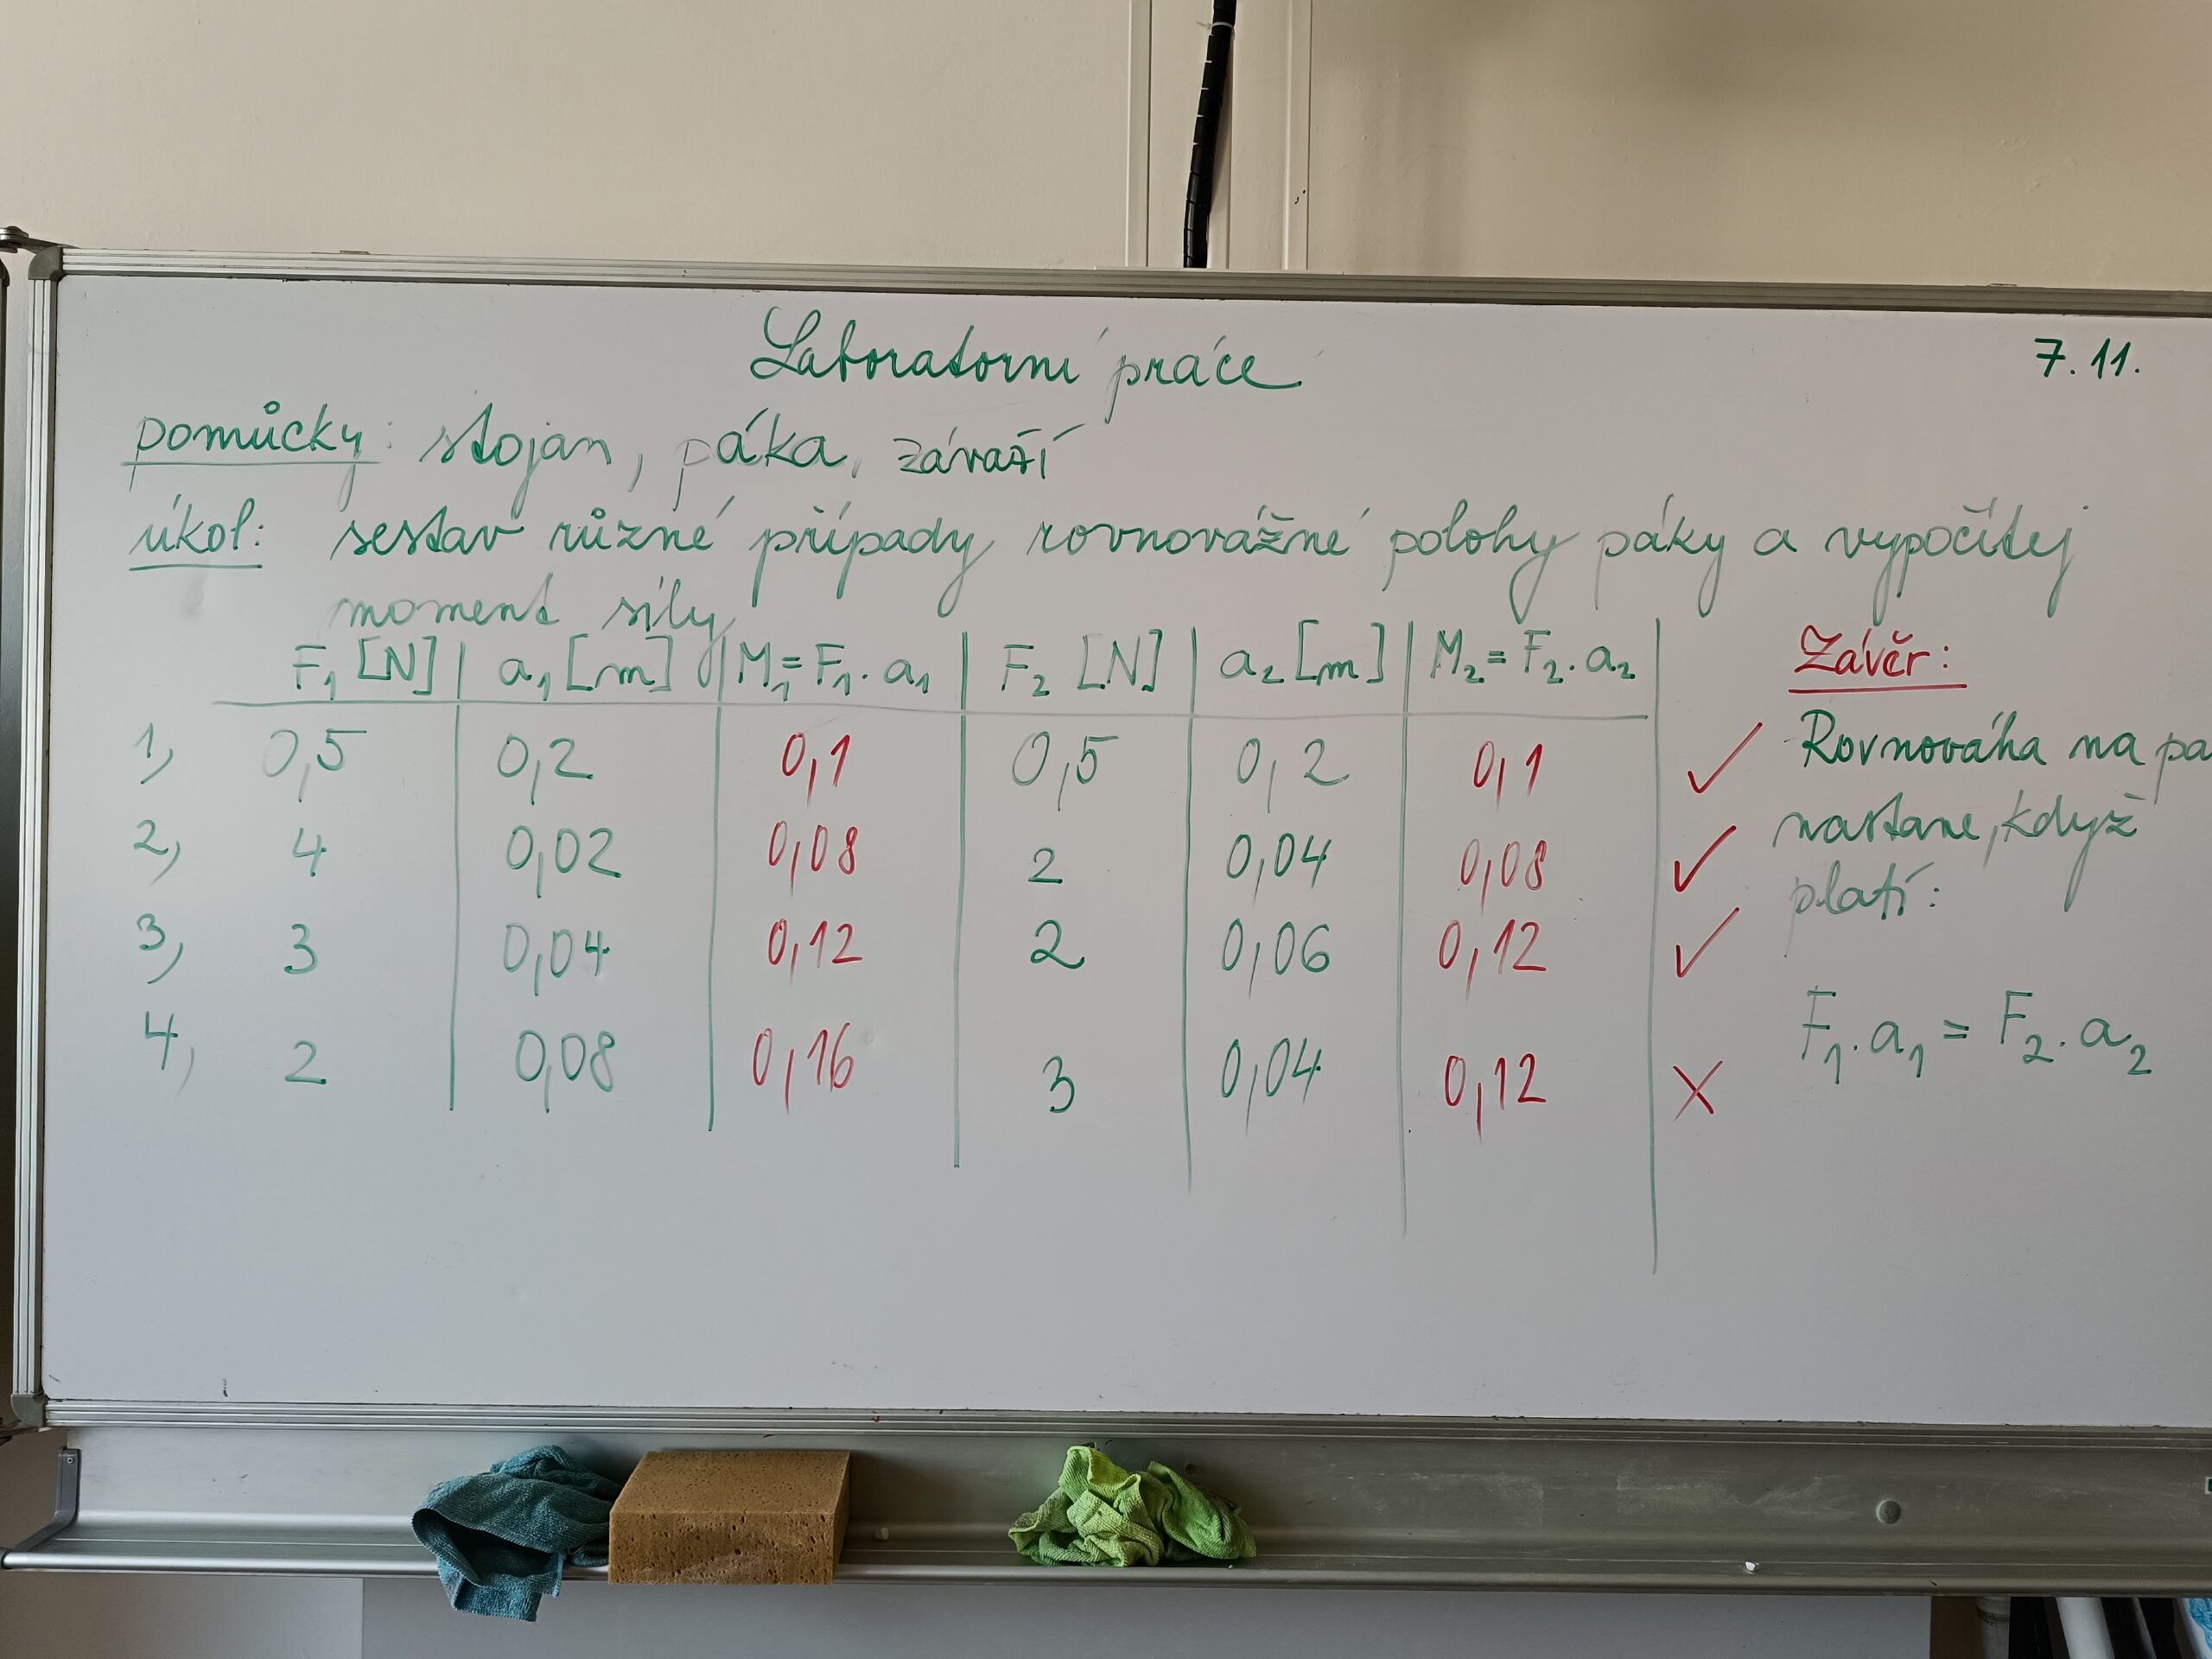 Laboratorní práce 7.11.
pomůcky: stojan, páka, závaží
úkol: sestav různé případy rovnovážné polohy páky a vypočítej
moment síly
F₁ [N] a₁ [m] M₁=F₁.a₁ F₂ [N] a₂ [m] M₂=F₂.a₂
1, 0,5 0,2 0,1 0,5 0,2 0,1 ✓
2, 4 0,02 0,08 2 0,04 0,08 ✓
3, 3 0,04 0,12 2 0,06 0,12 ✓
4, 2 0,08 0,16 3 0,04 0,12 X
Závěr:
Rovnováha na pá
nastane, když
platí:
F₁.a₁ = F₂.a₂